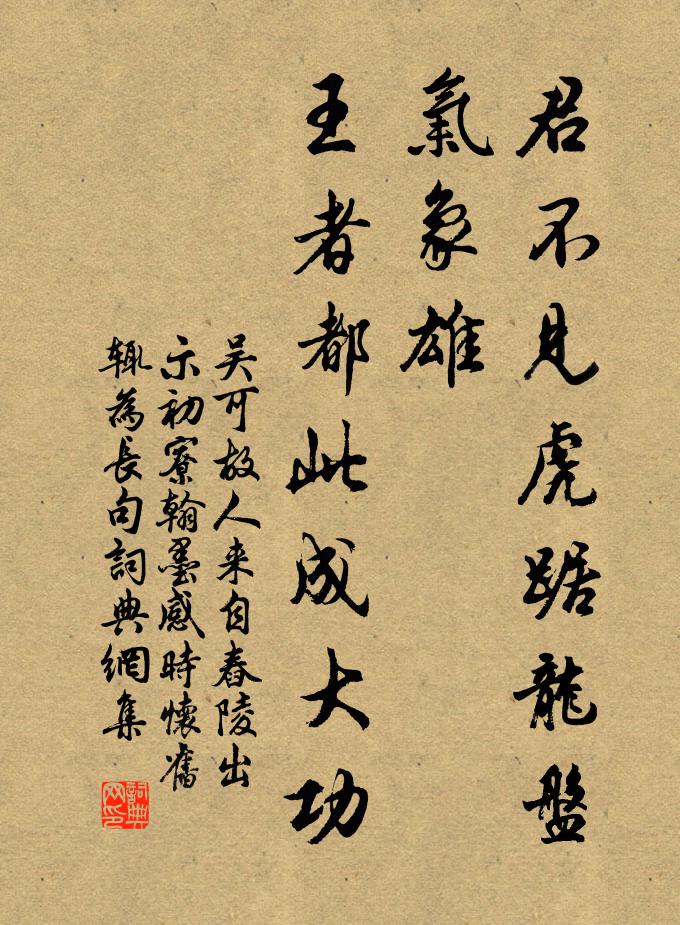 君不見虎踞龍盤
氣象雄
王者都此成大功
吳可故人来自舂陵出
示初寮翰墨感時懷舊
輒為長句詞典網集
詞典网印